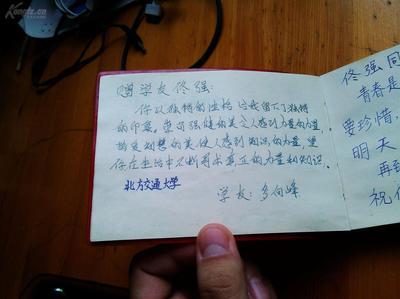 Kongfz.cn
赠学友佟强:
你以独特的性格给我留下了独特
的印象,
强健的美令人感到力量的力量
智慧的美使人感到知识的力量,
你在生活中不断寻求真正的力量和知识.
北方交通大学
学友:多向峰
佟强同
青春是
要珍惜,
明天
再到
祝你